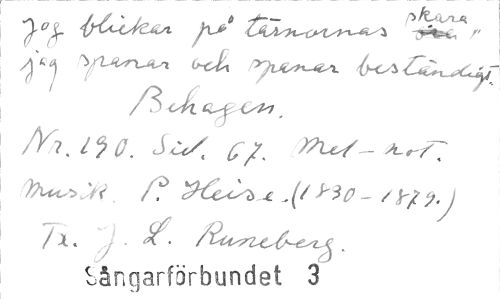 Jag blickar på tärnornas skara"
jag spanar och spanar beständigt.
Behagen.
Nr. 190. Sid. 67. Mel-not.
Musik. P. Heise. (1830-1879.)
Tx. J. L. Runeberg.
Sångarförbundet 3